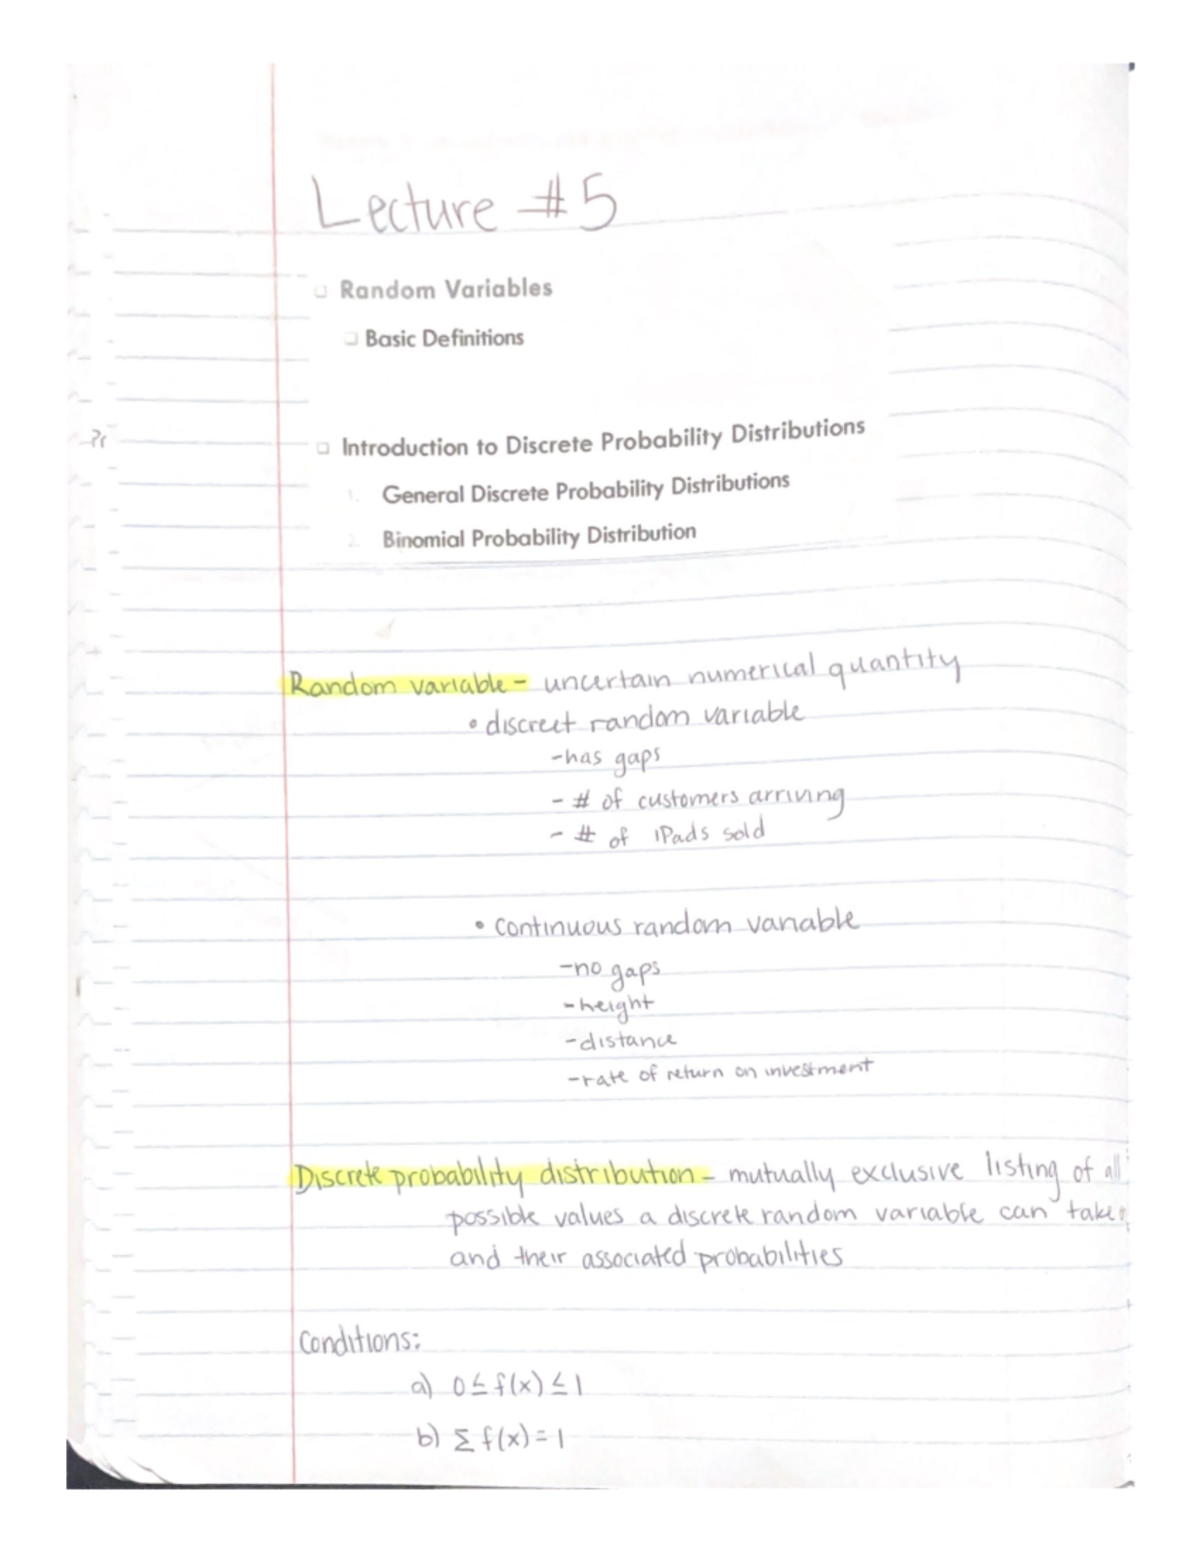 Lecture #5
Random Variables
Basic Definitions
Introduction to Discrete Probability Distributions
1. General Discrete Probability Distributions
2. Binomial Probability Distribution
Random variable - uncertain numerical quantity
• discreet random variable
- has gaps
- # of customers arriving
- # of iPads sold
• continuous random variable
- no gaps
- height
- distance
- rate of return on investment
Discrete probability distribution - mutually exclusive listing of all
possible values a discrete random variable can take
and their associated probabilities
Conditions:
a) 0 ≤ f(x) ≤ 1
b) Σ f(x) = 1